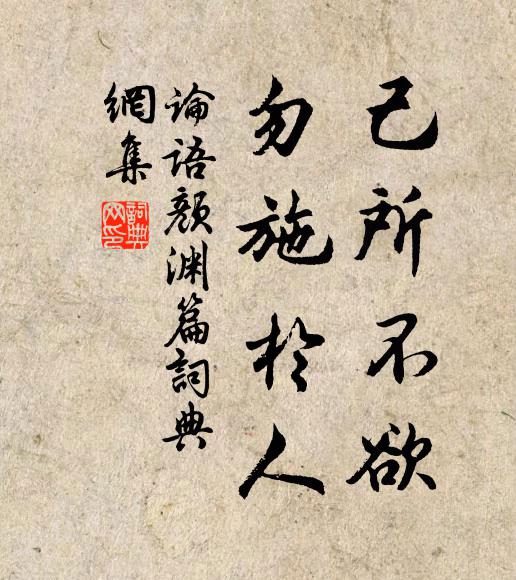 己所不欲
勿施於人
論語顏渊篇詞典
網集
詞典
网印